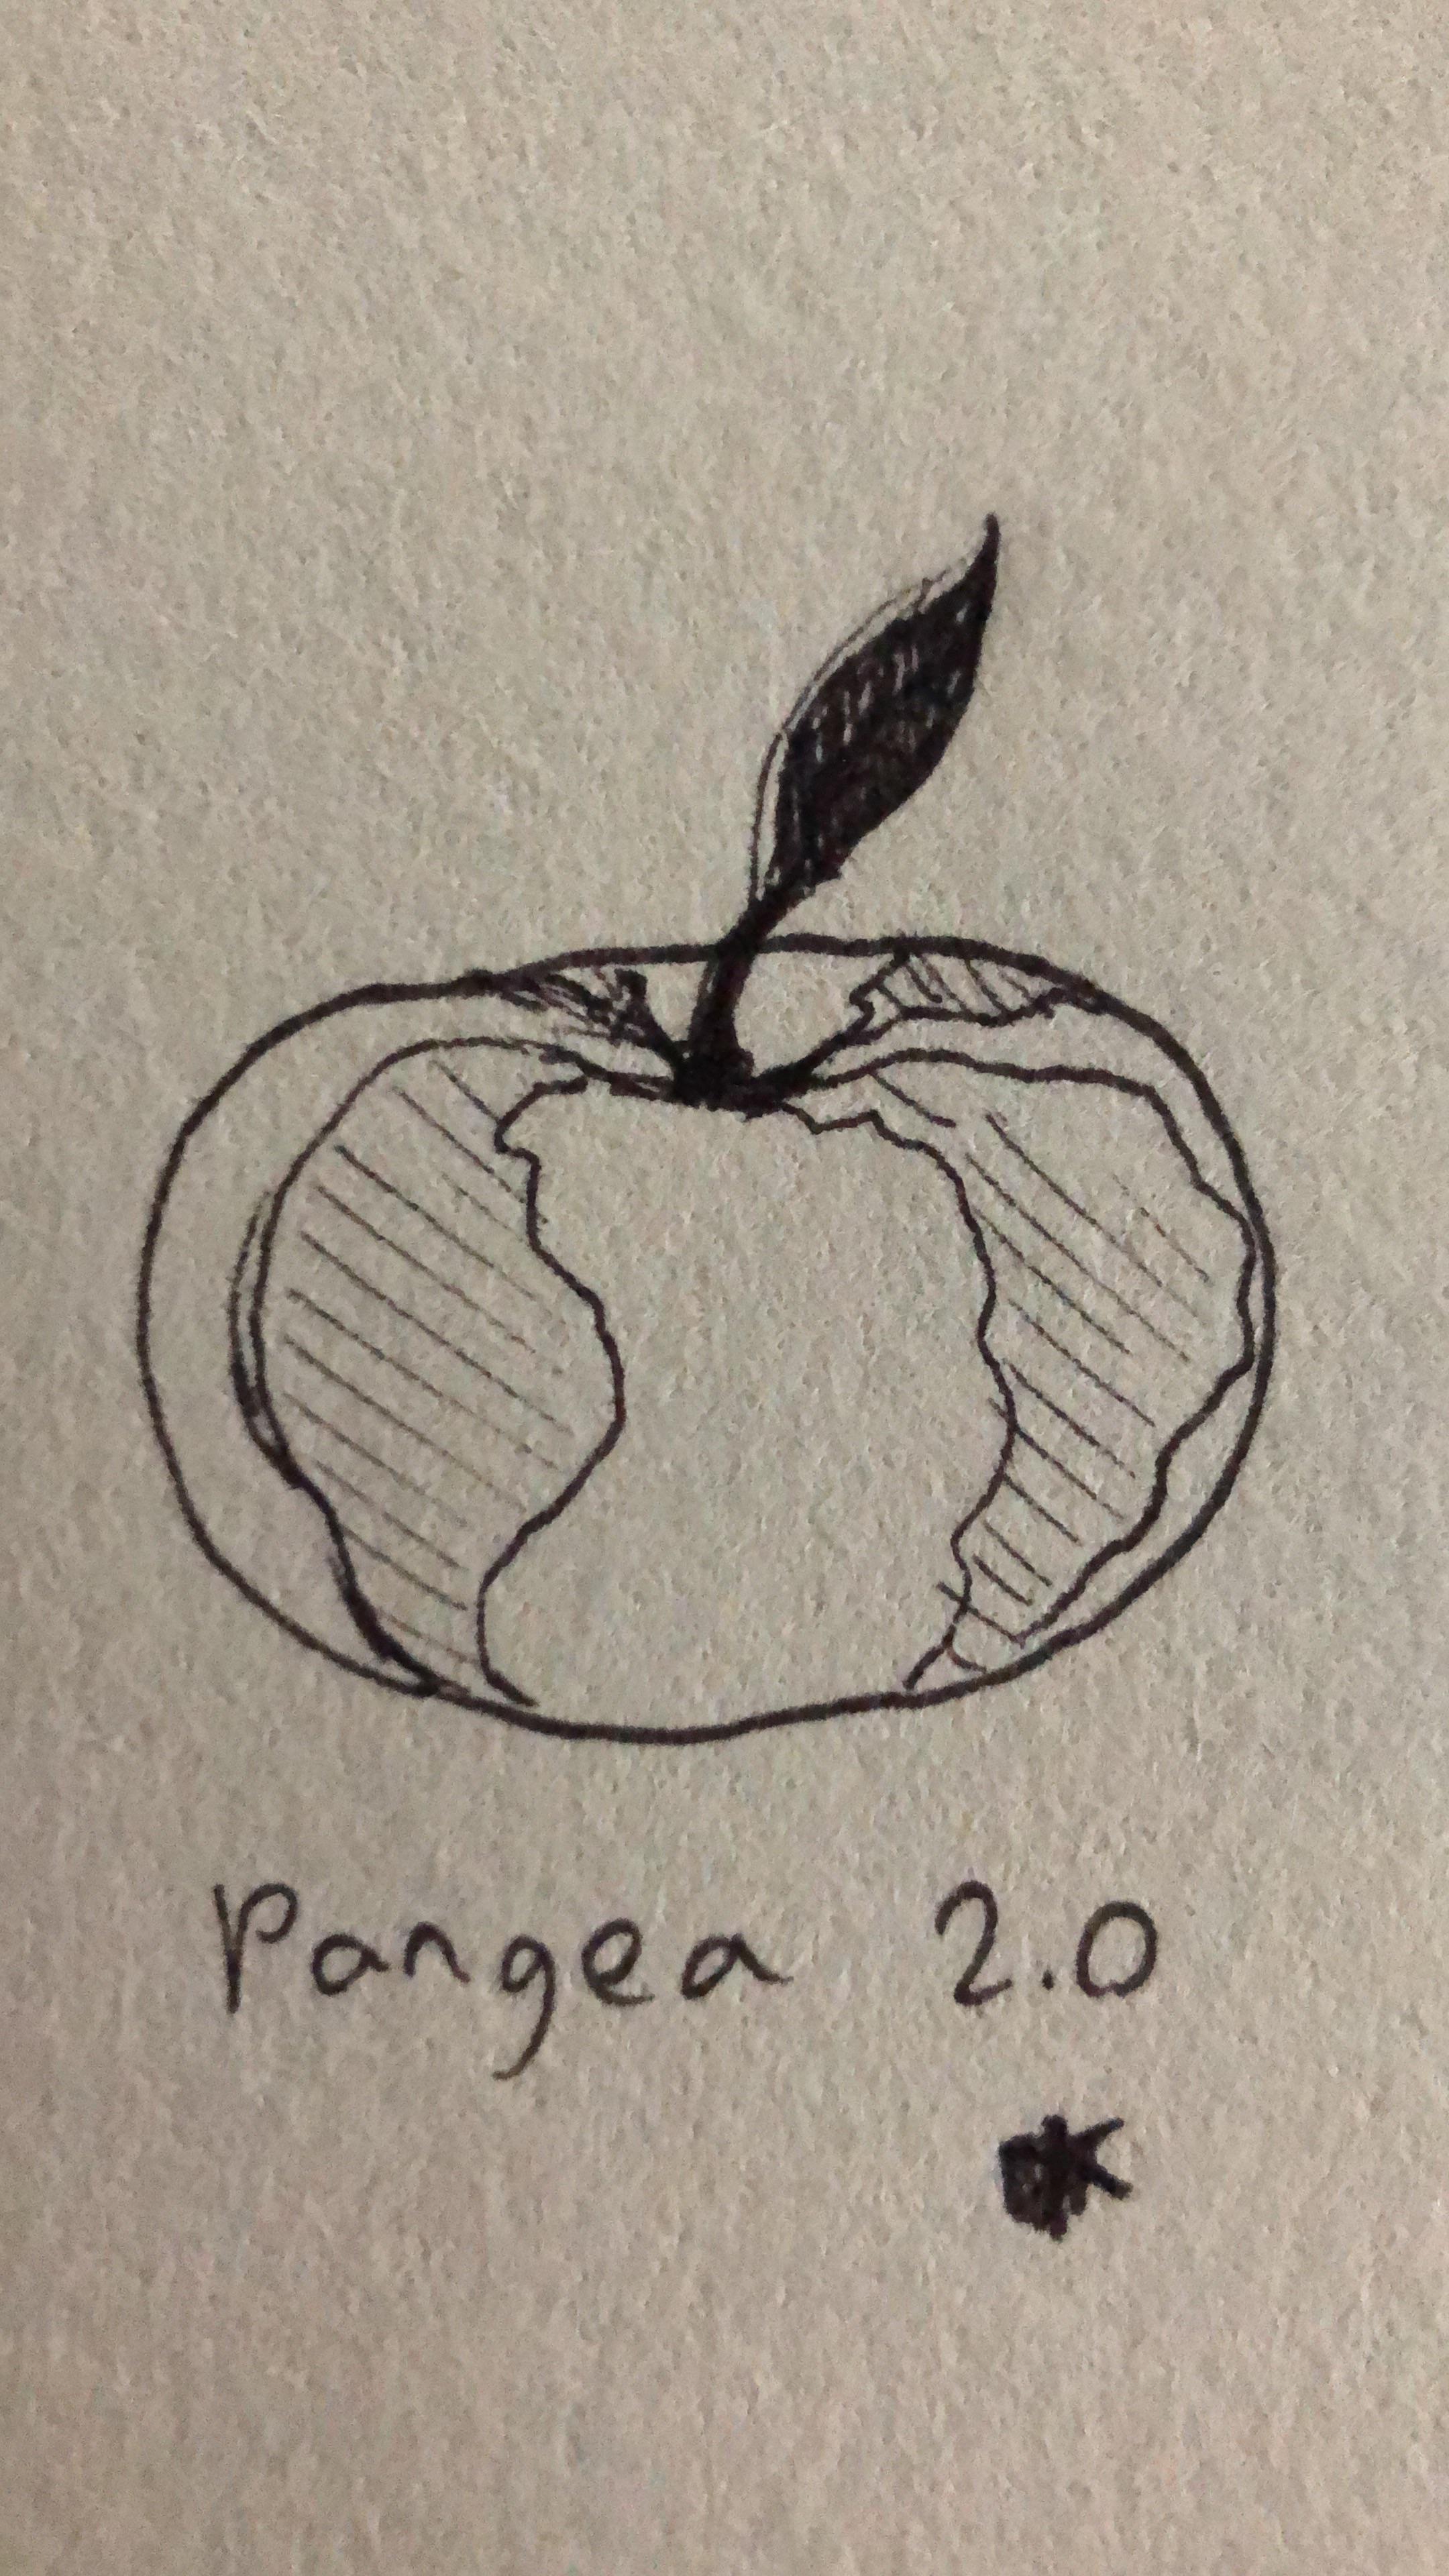 Pangea 2.0